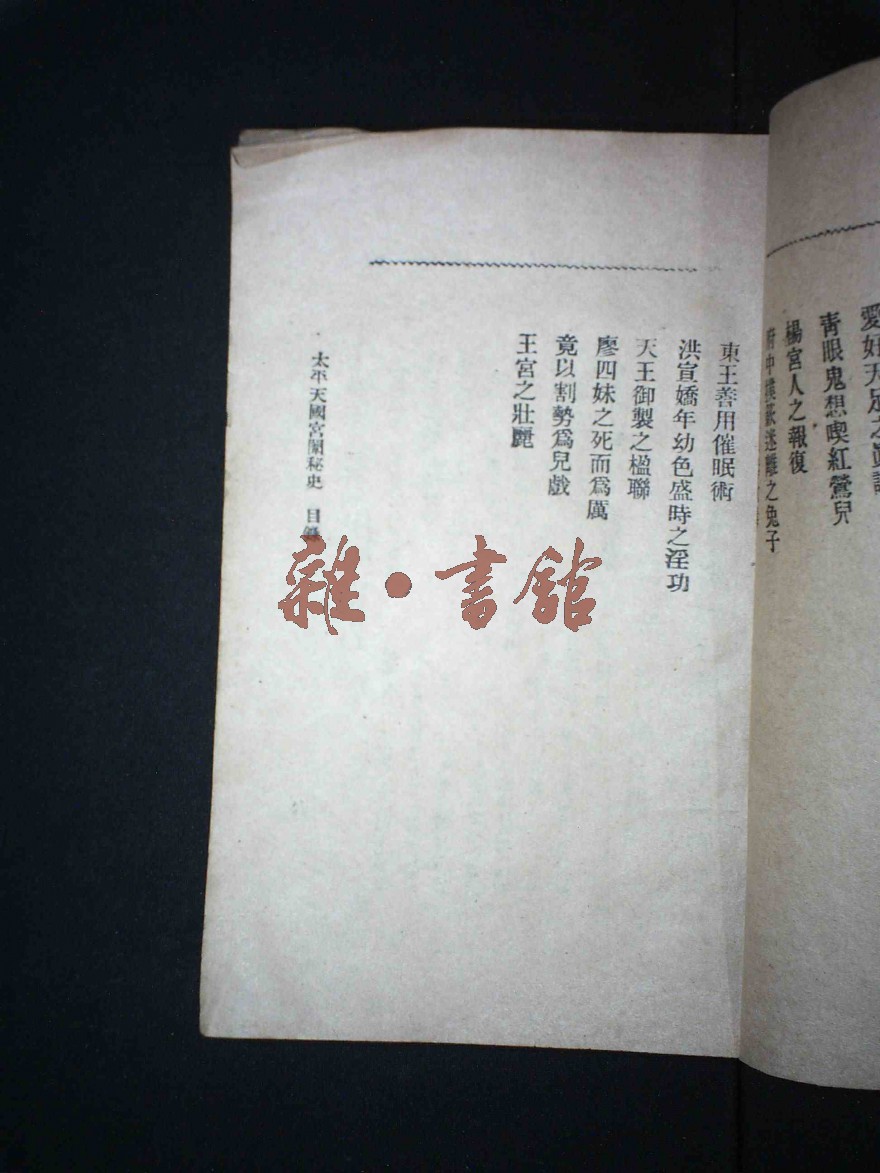 青眼鬼想喫紅鶯兒
楊宮人之報復
東王善用催眠術
洪宣嬌年幼色盛時之淫功
天王御製之楹聯
廖四妹之死而爲厲
竟以割勢爲兒戲
王宮之壯麗
太平天國宮闈秘史 目錄
雜·書館